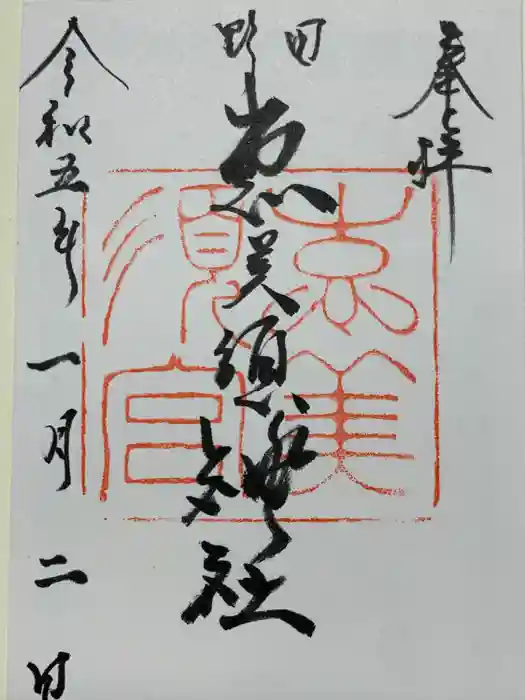 奉拝
野田
恵美須神社
恵美須宮
令和五年一月二日